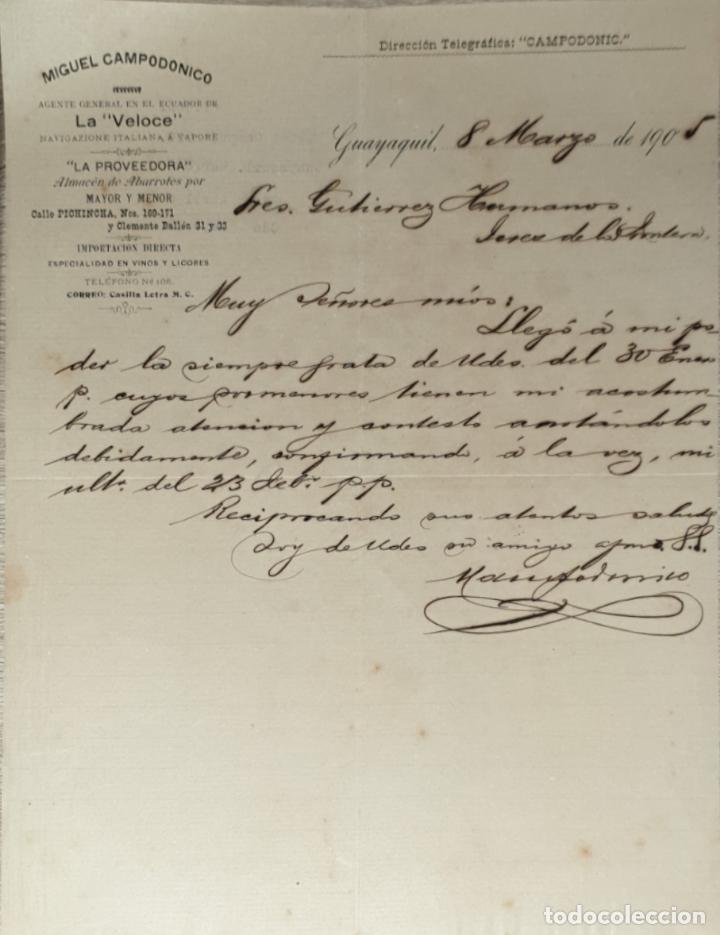 Dirección Telegráfica: "CAMPODONIC."
MIGUEL CAMPODONICO
AGENTE GENERAL EN EL ECUADOR DE
La "Veloce"
NAVIGAZIONE ITALIANA Á VAPORE
"LA PROVEEDORA"
Almacén de Abarrotes por
MAYOR Y MENOR
Calle PICHINCHA, Nos. 169-171
y Clemente Ballén 31 y 33
IMPORTACION DIRECTA
ESPECIALIDAD EN VINOS Y LICORES
TELÉFONO No 108.
CORREO: Casilla Letra M. C.
Guayaquil, 8 Marzo de 1905
Sres. Gutierrez Hermanos.
Jerez de la Frontera.
Muy Señores mios:
Llegó á mi po-
der la siempre grata de Udes. del 30 Enero
p. cuyos pormenores tienen mi acostum-
brada atencion y contesto anotándolos
debidamente, confirmando, á la vez, mi
ultª. del 23 Febº. pp.
Reciprocando sus atentos saludos
Soy de Udes su amigo afmo. S.S.
todocoleccion